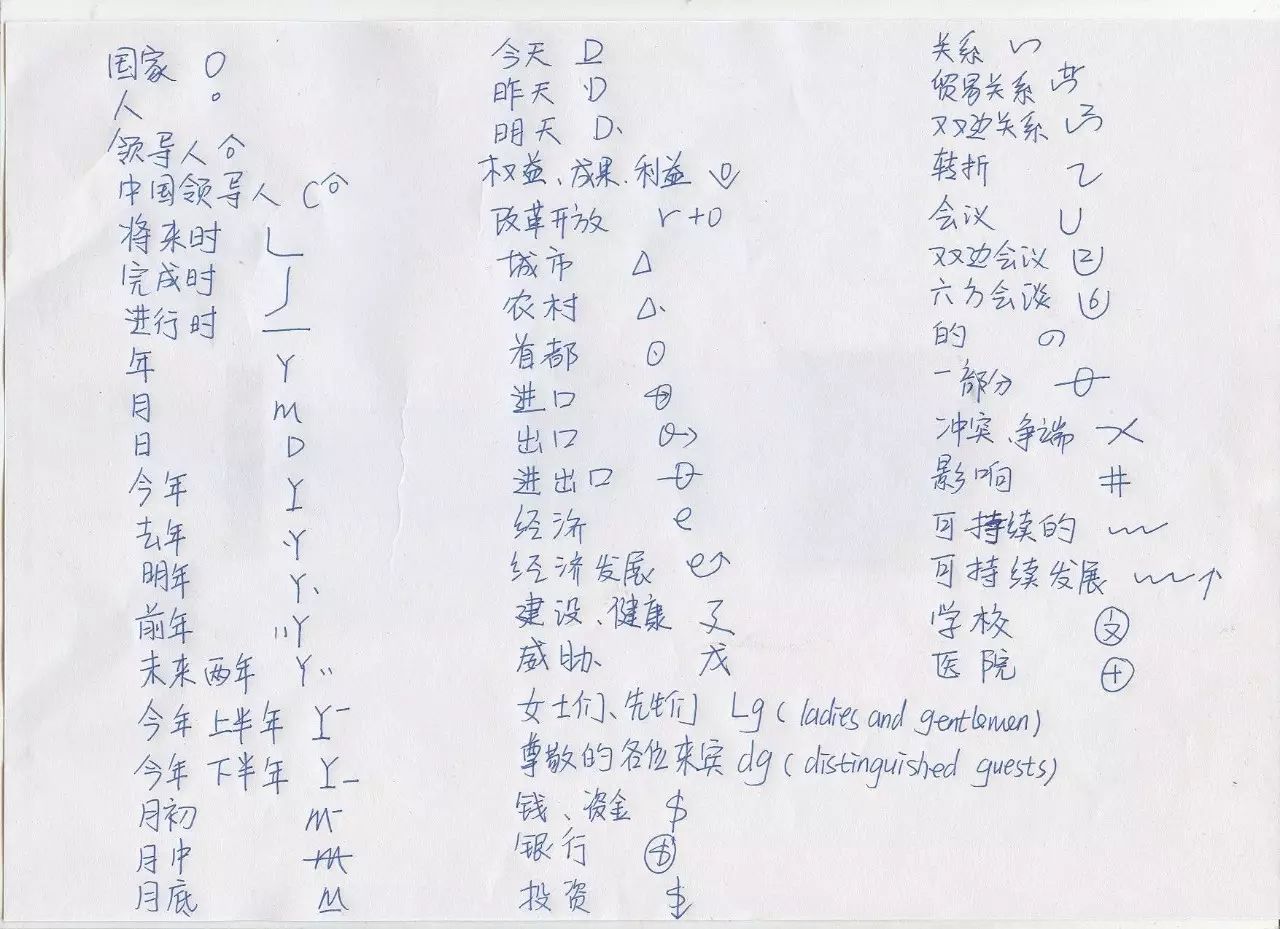 国家 O
人 o
领导人
中国领导人 C
将来时
完成时
进行时 —
年 Y
月 m
日 D
今年 Y
去年 .Y
明年 Y.
前年 ..Y
未来两年 Y..
今年上半年 Y-
今年下半年 Y_
月初 m-
月中 m
月底 m
今天 D
昨天 .D
明天 D.
权益、成果、利益
改革开放 r+o
城市 △
农村 △.
首都 ⊙
进口
出口
进出口
经济 e
经济发展 e↗
建设、健康
威胁 戊
女士们、先生们 Lg (ladies and gentlemen)
尊敬的各位来宾 dg (distinguished guests)
钱、资金 $
银行 $
投资 $
关系
贸易关系
双边关系
转折
会议 U
双边会议 2
六方会谈 6
的 の
一部分
冲突、争端
影响 #
可持续的 ~~
可持续发展 ~~↑
学校 文
医院 +